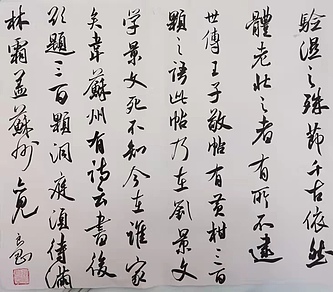 驗温之殊節千古依然
體老壯之者有所不逮
世傳王子敬帖有黄柑三百
顆之語此帖乃在劉景文
学景文死不知今在誰家
矣韋蘇州有詩云書後
欲題三百顆洞庭須待滿
林霜蓋蘇州亦見